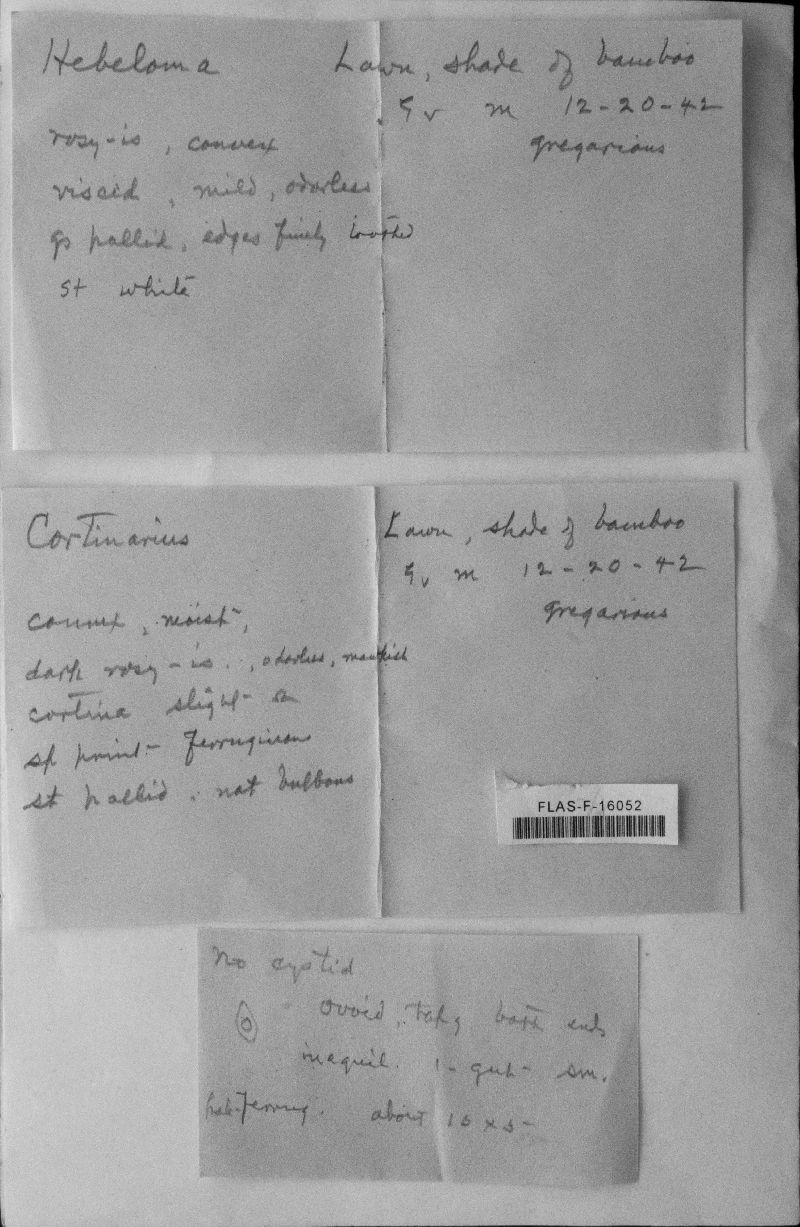 Hebeloma Lawn, shade of bamboo
Gv m 12-20-42
gregarious
rosy-is, convex
viscid, mild, odorless
gs pallid, edges finely toothed
st white
Cortinarius Lawn, shade of bamboo
Gv m 12-20-42
gregarious
convex, moist,
dark rosy-is., odorless, mawkish
cortina slight
sp print- ferruginous
st pallid, not bulbous
FLAS-F-16052
No cystid
ovoid, tap, both ends
inaequil. 1-gut- sm.
pale-ferrug. about 10 x 5-